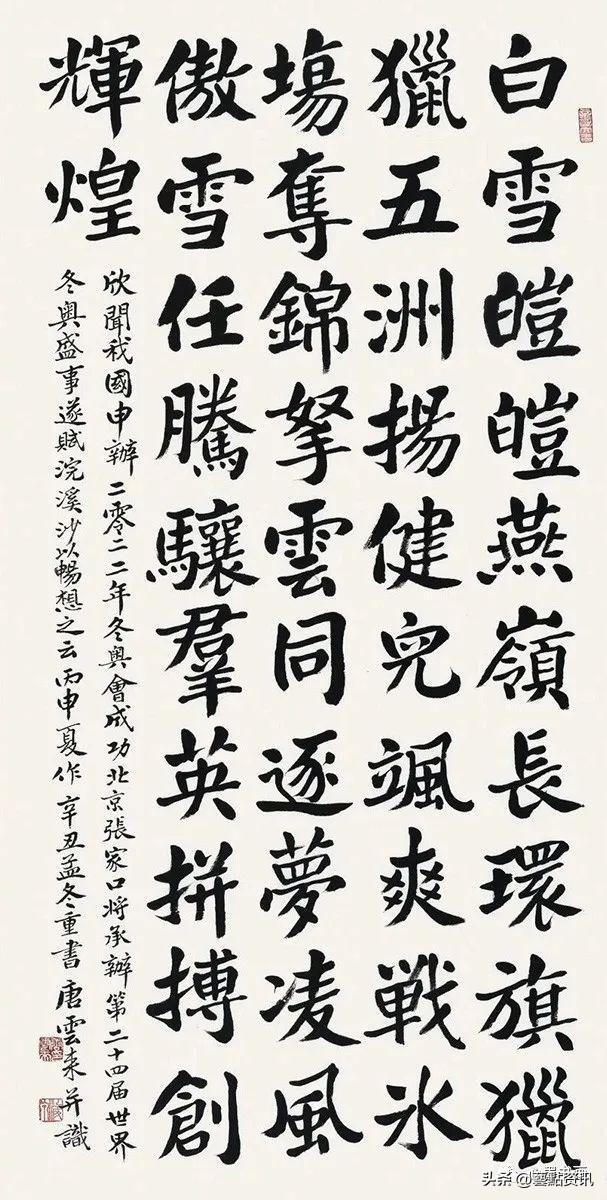 白雪皚皚燕嶺長環旗獵
獵五洲揚健児颯爽戦氷
塲奪錦拏雲同逐夢凌風
傲雪任騰驤羣英拼搏創
輝煌
欣聞我國申辦二零二二年冬奧會成功北京張家口将承辦第二十四届世界
冬奧盛事遂賦浣溪沙以暢想之云丙申夏作辛丑孟冬重書唐雲来并識
头条@藝點资讯